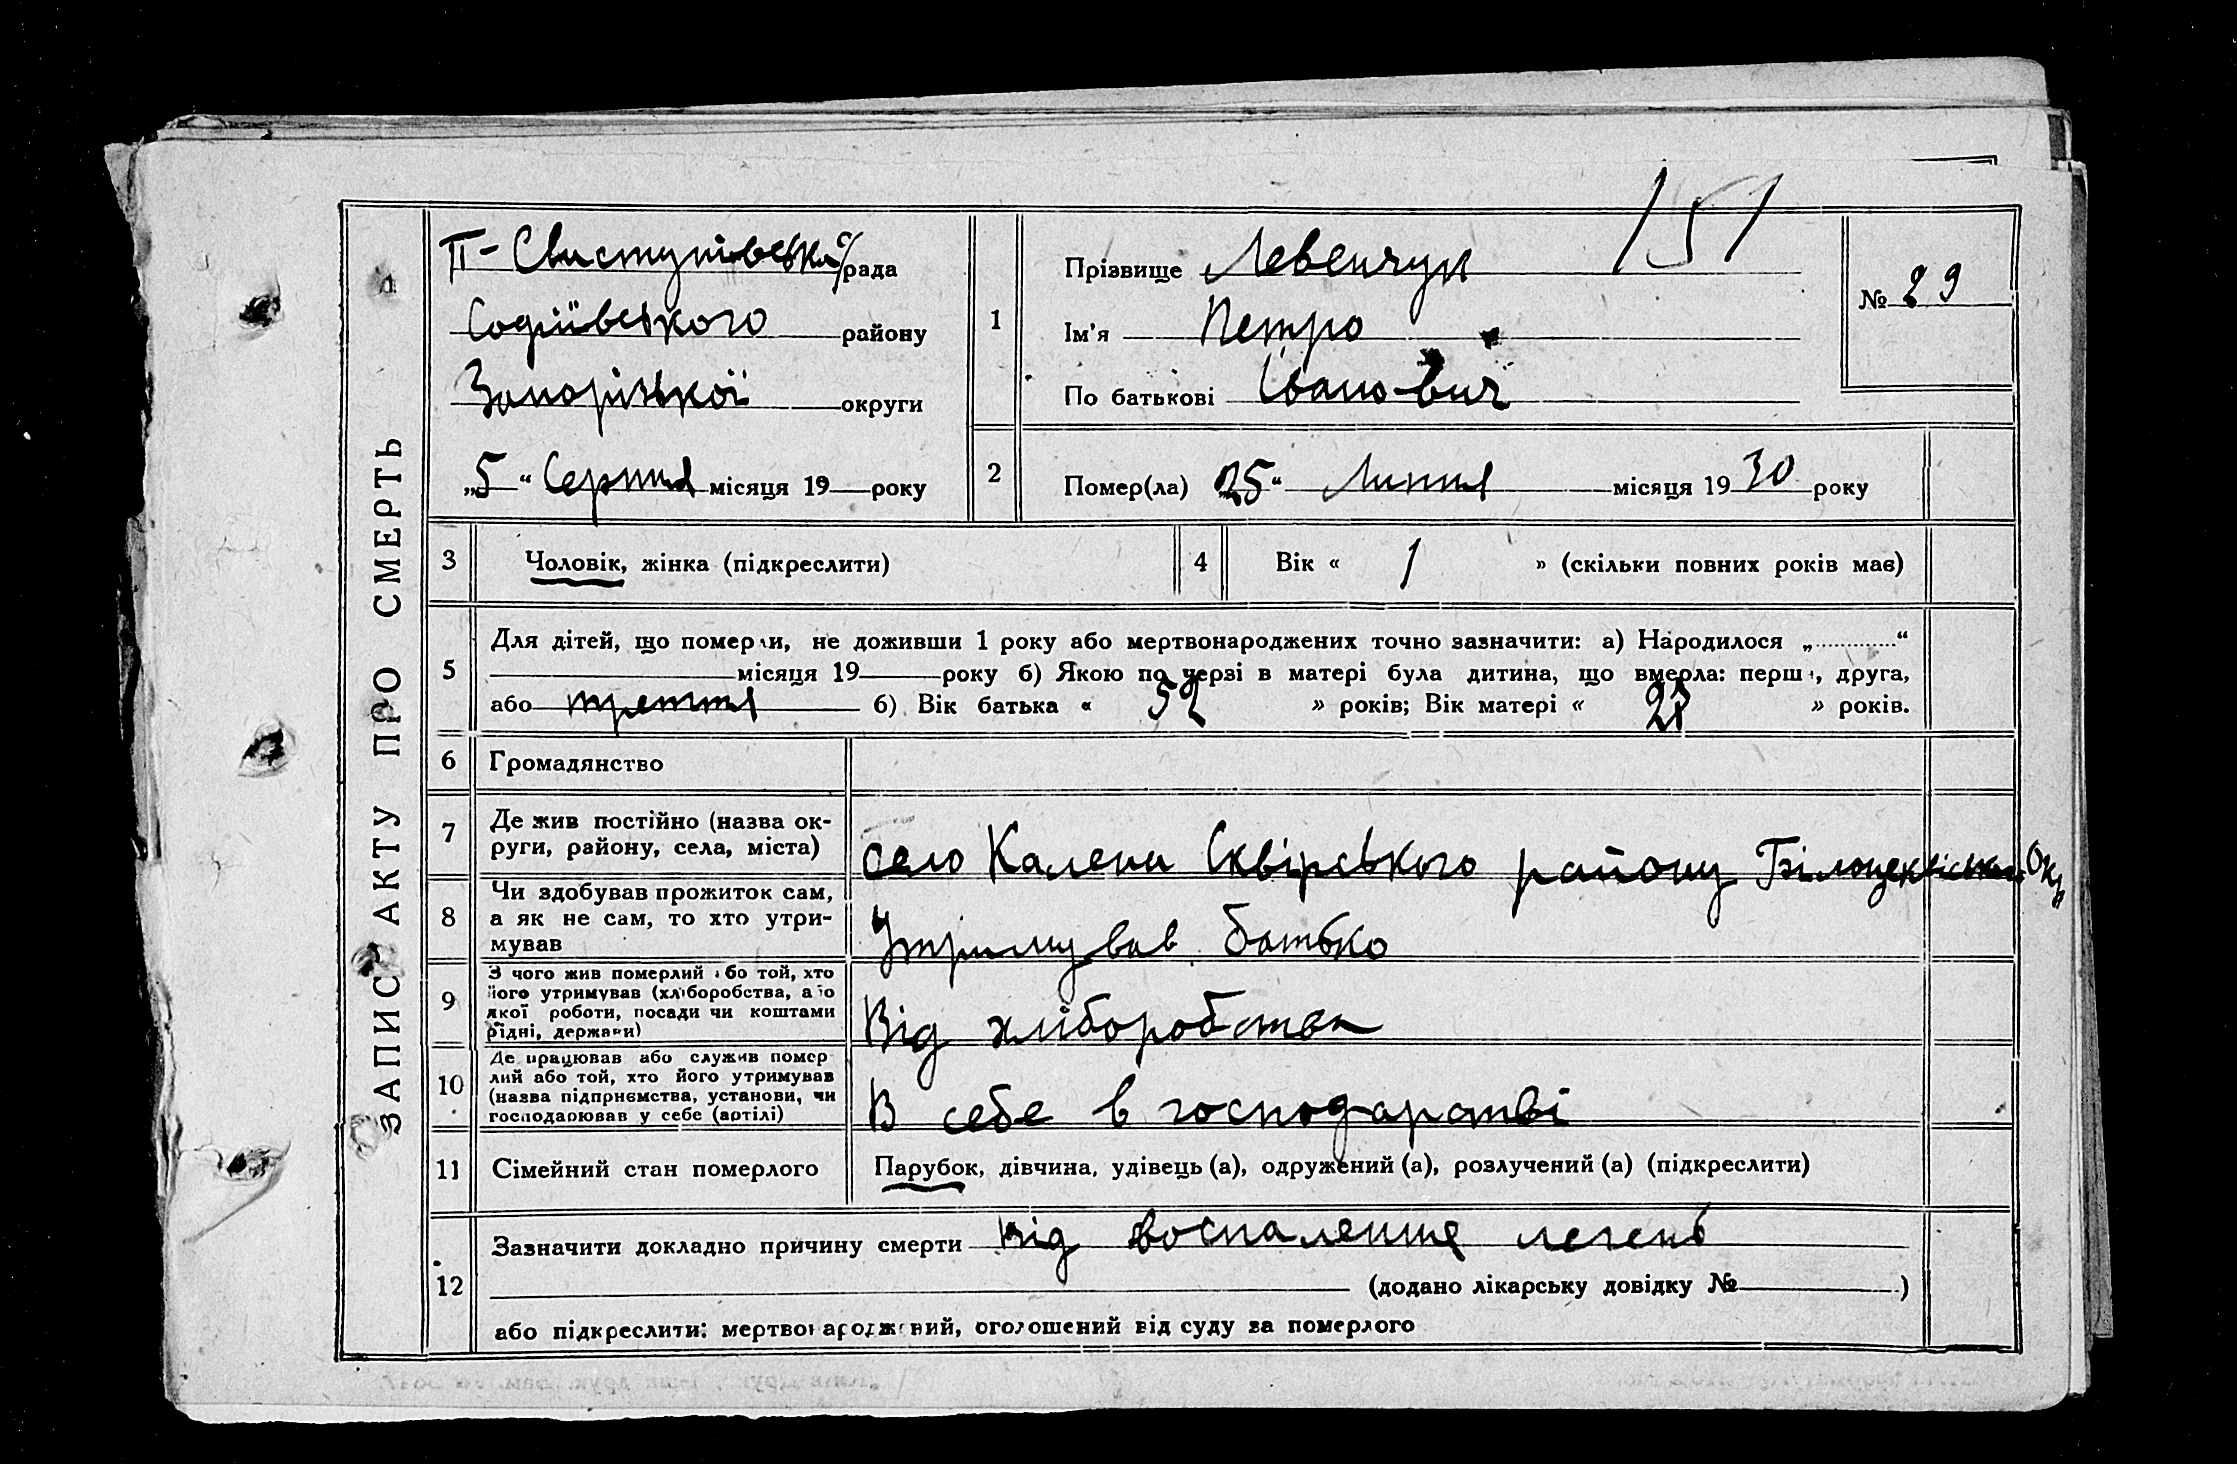 ЗАПИС АКТУ ПРО СМЕРТЬ
151
П-Свистунівська с/рада
Софіївського району
Запорізької округи
„5“ Серпня місяця 19 року
1
Прізвище Левенчук
Ім'я Петро
По батькові Іванович
№ 29
2
Помер(ла) „25“ Липня місяця 1930 року
3
Чоловік, жінка (підкреслити)
4
Вік « 1 » (скільки повних років має)
5
Для дітей, що померли, не доживши 1 року або мертвонароджених точно зазначити: а) Народилося „ “
місяця 19 року б) Якою по черзі в матері була дитина, що вмерла: перша, друга,
або третя б) Вік батька « 52 » років; Вік матері « » років.
6
Громадянство
7
Де жив постійно (назва ок-
руги, району, села, міста)
Село Калени Сквірського району Білоцерківської Окр
8
Чи здобував прожиток сам,
а як не сам, то хто утри-
мував
Утримував батько
9
З чого жив померлий або той, хто
його утримував (хліборобства, або
якої роботи, посади чи коштами
рідні, держави)
Від хліборобства
10
Де працював або служив помер
лий або той, хто його утримував
(назва підприємства, установи, чи
господарював у себе (артілі)
В себе в господарстві
11
Сімейний стан померлого
Парубок, дівчина, удівець (а), одружений (а), розлучений (а) (підкреслити)
12
Зазначити докладно причину смерти від воспалення легень
(додано лікарську довідку № )
або підкреслити: мертвонароджений, оголошений від суду за померлого